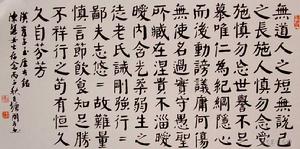 無道人之短無說己
之長施人慎勿念受
施慎勿忘世譽不足
慕唯仁為紀綱隱心
而後動謗議庸何傷
無使名過實守愚聖
所臧在涅貴不淄曖
曖內含光柔弱生之
徒老氏誡剛強行行
鄙夫志悠悠故難量
慎言節飲食知足勝
不祥行之苟有恆久
久自芬芳
漢崔子玉座右銘